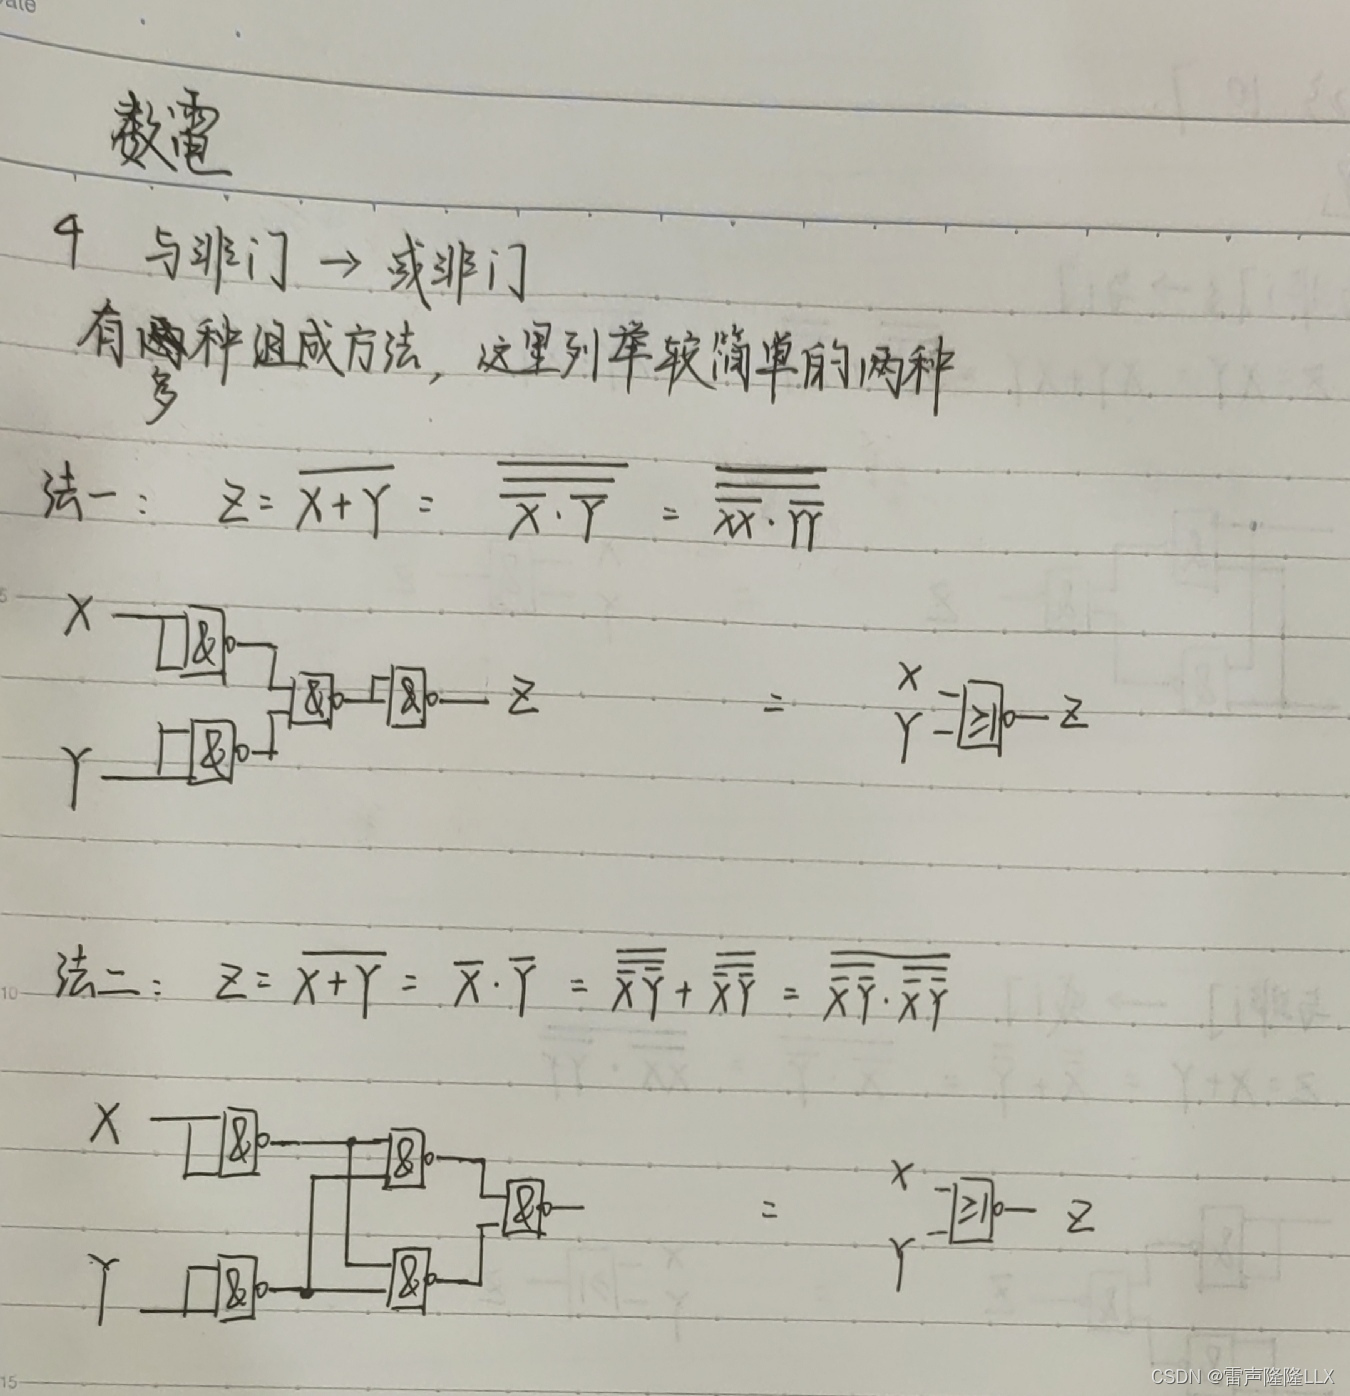 ate
数電
4 与非门 → 或非门
有多种组成方法，这里列举较简单的两种
法一： Z = \overline{X+Y} = \overline{\overline{\overline{X}·\overline{Y}}} = \overline{\overline{\overline{XX}·\overline{YY}}}
5
X & & & Z = X Y ≥1 Z
Y &
10
法二： Z = \overline{X+Y} = \overline{X}·\overline{Y} = \overline{\overline{\overline{X}\,\overline{Y}}} + \overline{\overline{\overline{X}\,\overline{Y}}} = \overline{\overline{\overline{X}\,\overline{Y}}·\overline{\overline{X}\,\overline{Y}}}
X & & & = X Y ≥1 Z
Y & &
15
CSDN @雷声隆隆LLX